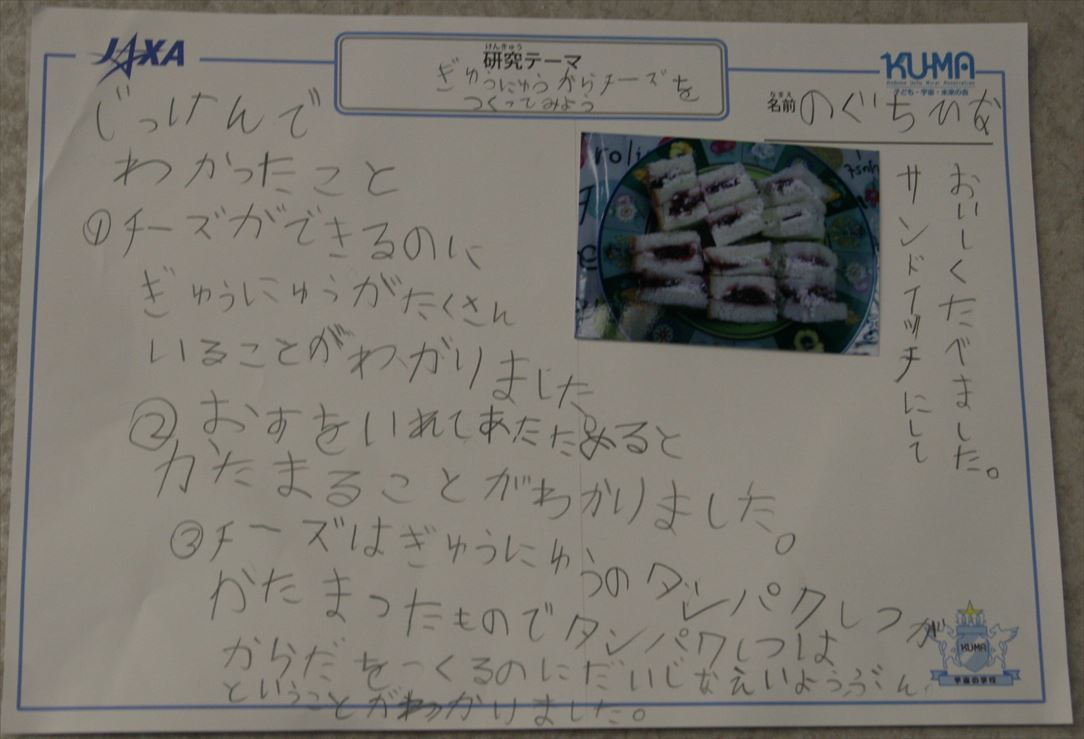 JAXA
研究テーマ
けんきゅう
ぎゅうにゅうからチーズを
つくってみよう
KU-MA
子ども・宇宙・未来の会
名前
なまえ
のぐちひな
じっけんで
わかったこと
①チーズができるのに
ぎゅうにゅうがたくさん
いることがわかりました。
②おすをいれてあたためると
かたまることがわかりました。
③チーズはぎゅうにゅうのタンパクしつが
かたまったものでタンパクしつは
からだをつくるのにだいじなえいようぶん
ということがわかりました。
おいしくたべました。
サンドイッチにして
KUMA
宇宙の学校